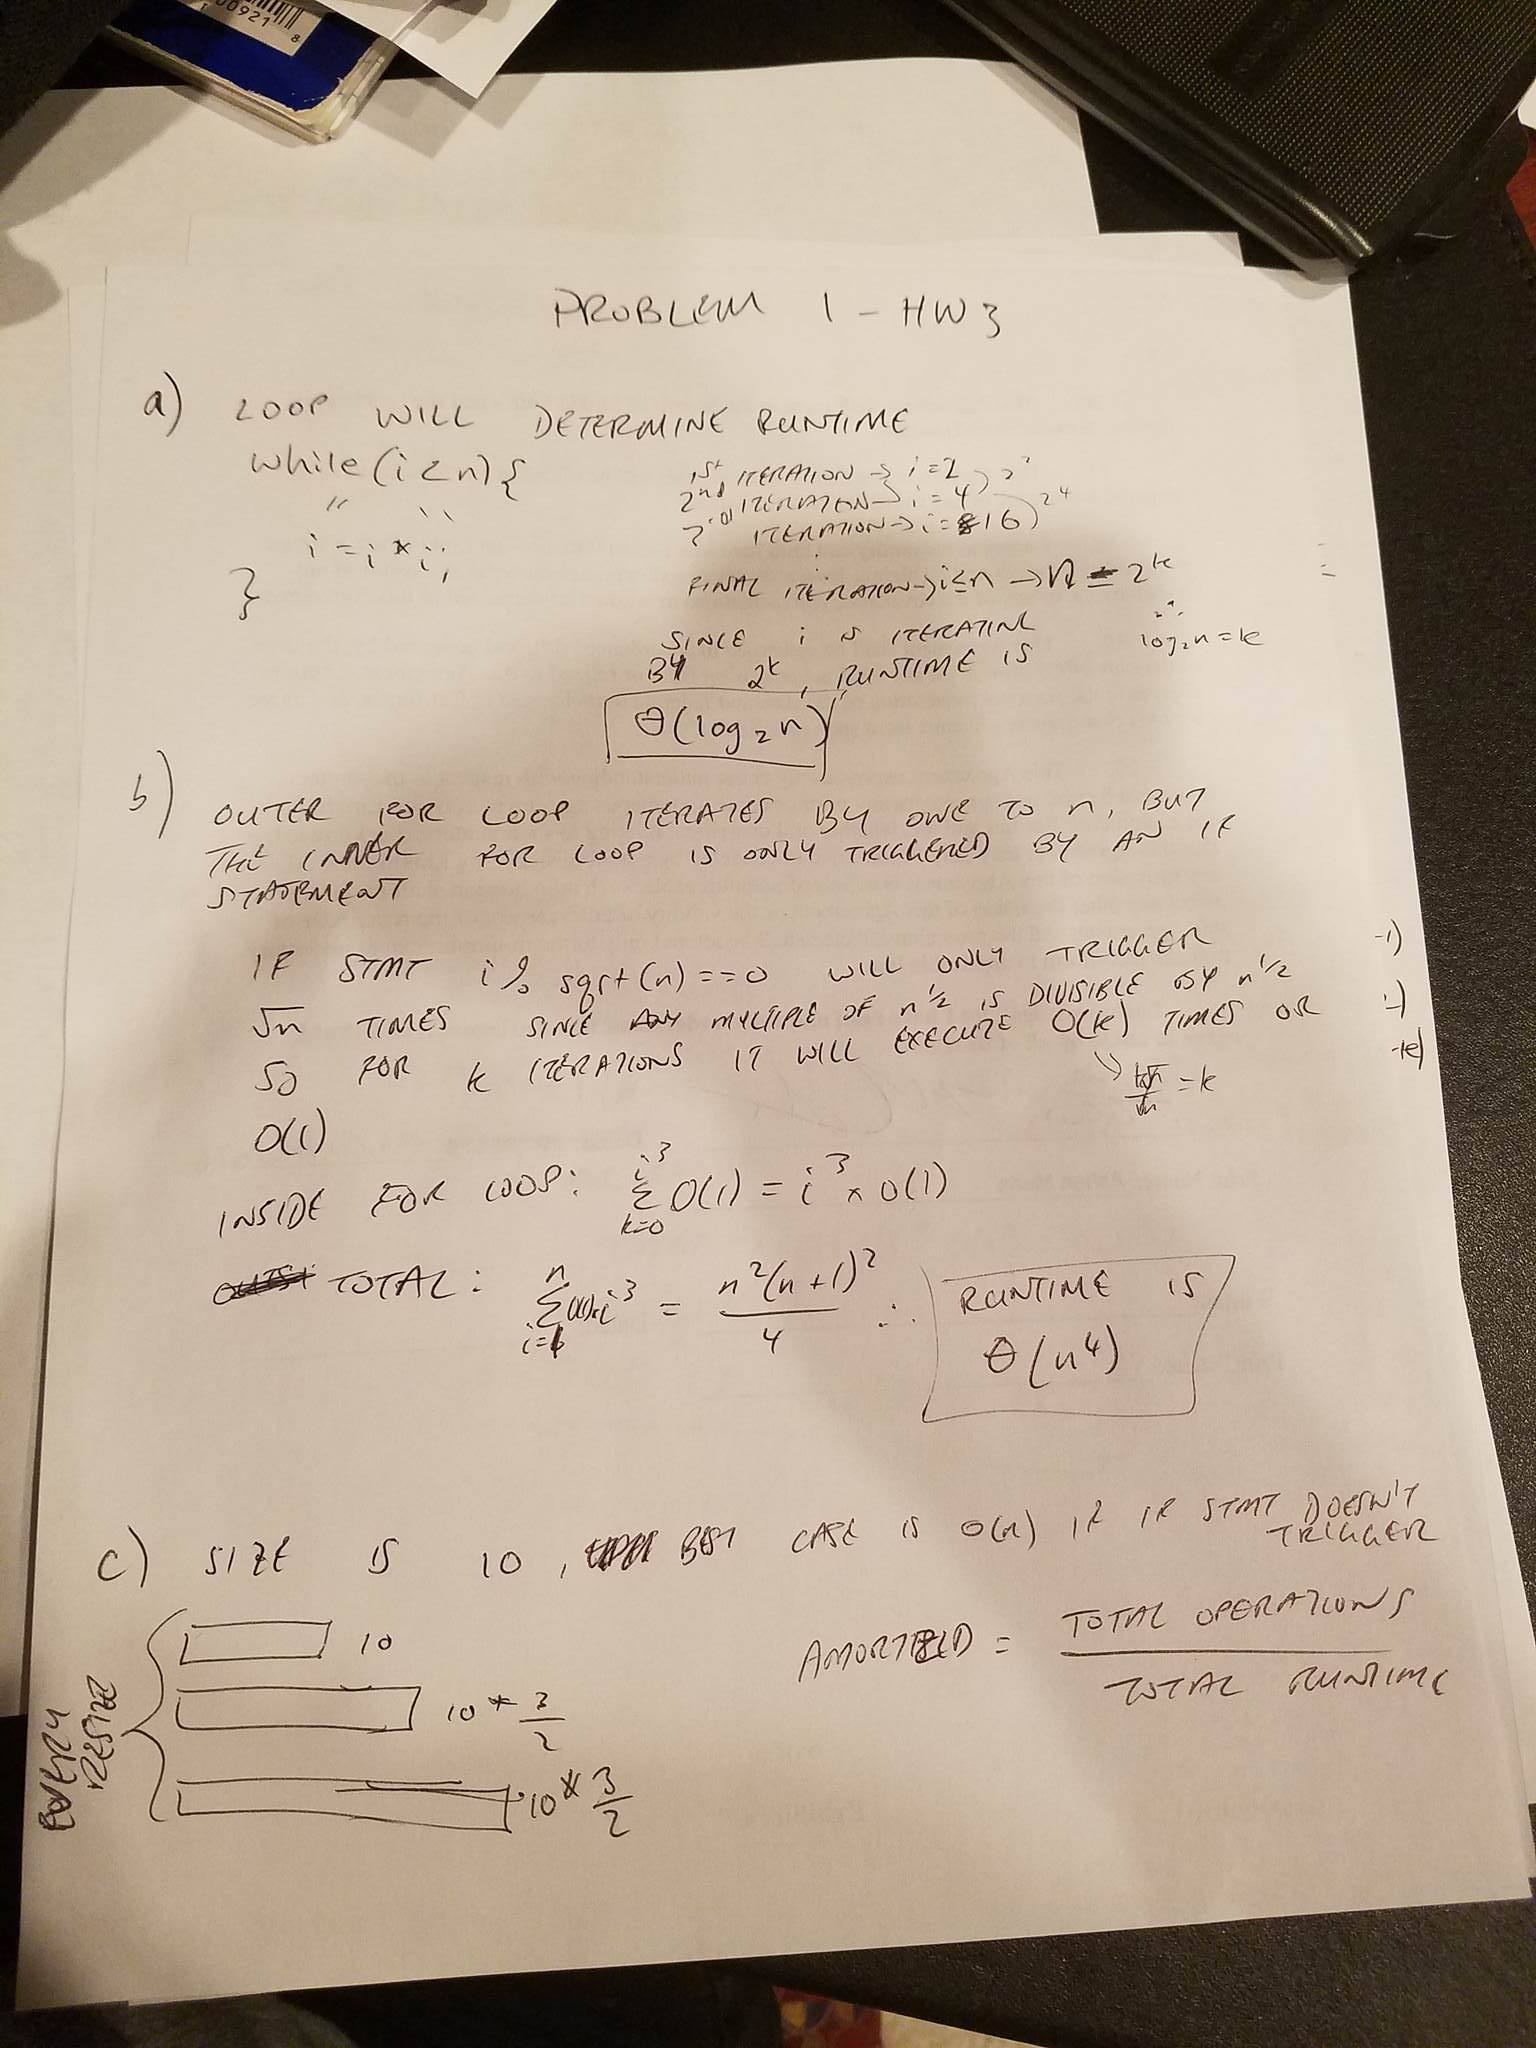 00921
8
PROBLEM 1 - HW3
a) LOOP WILL DETERMINE RUNTIME
while (i < n) {
" "
i = i * i;
}
1st ITERATION → i = 2
2nd ITERATION → i = 4 ) 2²
3rd ITERATION → i = 16 ) 2⁴
FINAL ITERATION → i ≤ n → n = 2ᵏ
SINCE i IS ITERATING
BY 2ᵏ, RUNTIME IS
log₂n = k
Θ(log₂n)
b) OUTER FOR LOOP ITERATES BY ONE TO n, BUT
THE INNER FOR LOOP IS ONLY TRIGGERED BY AN IF
STATEMENT
IF STMT i % sqrt(n) == 0 WILL ONLY TRIGGER
√n TIMES SINCE ANY MULTIPLE OF n^½ IS DIVISIBLE BY n^½
SO FOR k ITERATIONS IT WILL EXECUTE O(k) TIMES OR
k√n/√n = k
O(1)
INSIDE FOR LOOP: i³ Σ k=0 O(1) = i³ × O(1)
TOTAL: n Σ i=1 O(1)×i³ = n²(n+1)²/4 ∴ RUNTIME IS
Θ(n⁴)
c) SIZE IS 10, BEST CASE IS O(n) IF IF STMT DOESN'T
TRIGGER
EVERY
RESIZE
10
10 * 3/2
10 * 3/2
AMORTIZED = TOTAL OPERATIONS
TOTAL RUNTIME